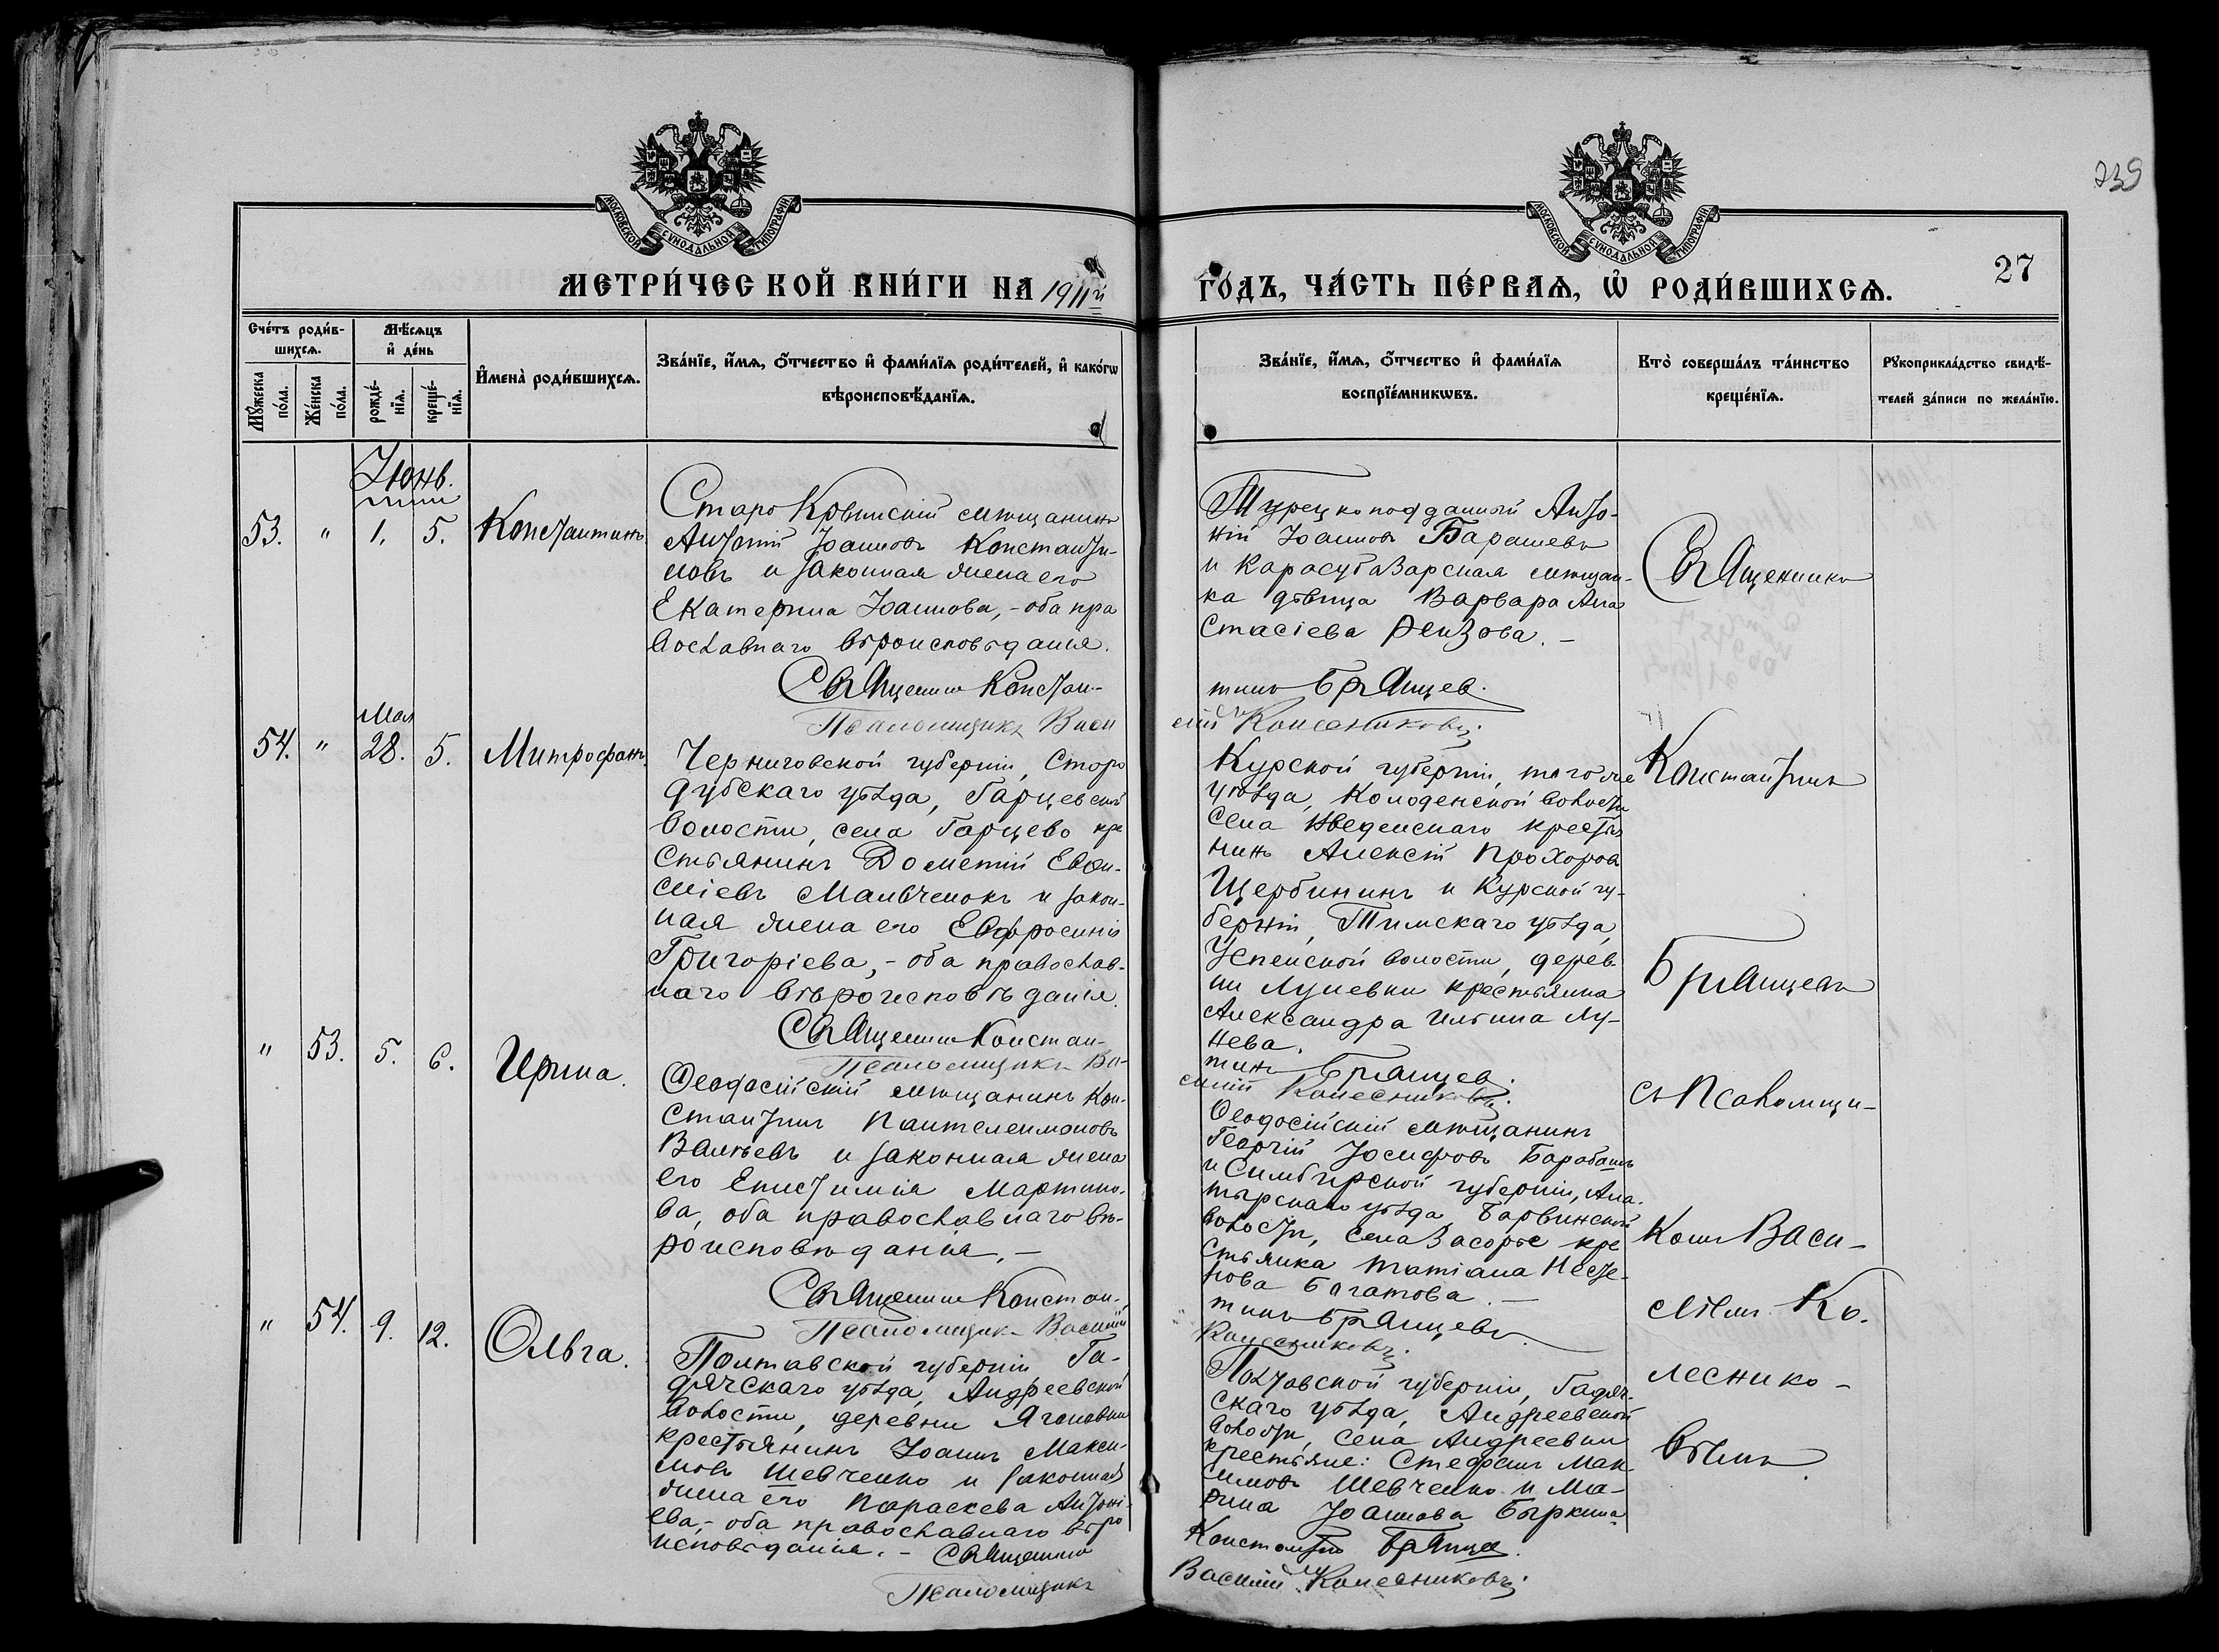 239
МОСКОВСКОЙ СѴНОДАЛЬНОЙ ТИПОГРАФІИ
МОСКОВСКОЙ СѴНОДАЛЬНОЙ ТИПОГРАФІИ
МЕТРИ́ЧЕСКОЙ КНИ́ГИ НА 1911й
ГО́ДЪ, ЧА́СТЬ ПЕ́РВАѦ, Ѡ҆ РОДИ́ВШИХСѦ. 27
Сче́тъ роди́в-
шихсѧ.
Мꙋ́жеска по́ла.
Же́нска по́ла.
Мѣ́сѧцъ
и҆ де́нь
рожде́-нїѧ.
креще́-нїѧ.
И҆мена̀ роди́вшихсѧ.
Зва́нїе, и҆́мѧ, ѻ҆́тчество и҆ фами́лїѧ роди́телей, и҆ како́гѡ
вѣроисповѣ́данїѧ.
Зва́нїе, и҆́мѧ, ѻ҆́тчество и҆ фами́лїѧ
воспрїе́мникѡвъ.
Кто̀ соверша́лъ та́инство
креще́нїѧ.
Рꙋкоприкла́дство свидѣ́-
телей за́писи по жела́нїю.
Іюнь.
53. " 1. 5. Константинъ.
Старо Крымскій мѣщанинъ
Антоній Іоанновъ Константи-
новъ и законная жена его
Екатерина Іоаннова, - оба пра
вославнаго вѣроисповѣданія.
Священник Констан-
Псаломщикъ Васи
Турецкоподданный Анто-
ній Іоанновъ Барашевъ
и Карасубазарская мѣщан-
ка дѣвица Варвара Ана
стасіева Рензова. -
тинъ Брянцев.
лій Колесниковъ.
Священникъ
Мая
54. " 28. 5. Митрофанъ.
Черниговской губерніи, Старо
дубскаго уѣзда, Гарцевской
волости, села Гарцево кре
стьянинъ Дометій Евфи-
міевъ Мальченокъ и закон-
ная жена его Евфросинія
Григоріева, - оба православ-
наго вѣроисповѣданія.
Священник Констан-
Псаломщикъ Ва-
Курской губерніи, того же
уѣзда, Колоденской волости
села Введенскаго крестья
нинъ Алексій Прохоровъ
Щербининъ и Курской гу-
берніи, Тимскаго уѣзда,
Успенской волости, дерев-
ни Луневки крестьянка
Александра Ильина Лу-
нева.
тинъ Брянцев.
силій Колесниковъ.
Константинъ
Брянцевъ
" 53. 5. 6. Ирина.
Ѳеодосійскій мѣщанинъ Кон-
стантинъ Пантелеимоновъ
Вальевъ и законная жена
его Епистимія Мартино-
ва, оба православнаго вѣ-
роисповѣданія. -
Священник Констан-
Псаломщикъ Василій
Ѳеодосійскій мѣщанинъ
Георгій Іосифовъ Барабашъ
и Симбирской губерніи, Ала-
тырскаго уѣзда Барвинской
волости, села Засорье кре
стьянка Татіана Несте-
рова Богатова. -
тинъ Брянцевъ
Колесниковъ.
съ Псаломщи-
комъ Васи-
ліемъ Ко-
леснико-
вымъ.
" 54. 9. 12. Ольга.
Полтавской губерніи Га-
дячскаго уѣзда, Андреевской
волости, деревни
крестьянинъ Іоаннъ Макси-
мовъ Шевченко и законная
жена его Параскева Антоні-
ева, - оба православнаго вѣро
исповѣданія. - Священник
Псаломщикъ
Полтавской губерніи, Гадяч-
скаго уѣзда, Андреевской
волости, села Андреевки
крестьяне: Стефанъ Мак-
симовъ Шевченко и Ма-
рина Іоаннова Быркина
Константин Брянцев.
Василій Колесниковъ.